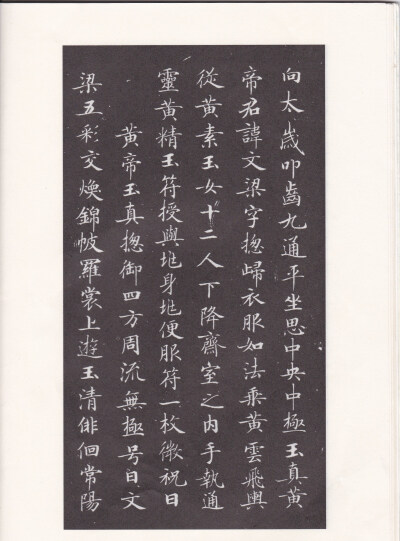 向太歲叩齒九通平坐思中央中極玉真黃
帝君諱文梁字揔歸衣服如法乘黃雲飛輿
從黃素玉女十二人下降齋室之内手執通
靈黃精玉符授與地身地便服符一枚微祝曰
黃帝玉真揔御四方周流無極号曰文
梁五彩交煥錦帔羅裳上遊玉清俳徊常陽